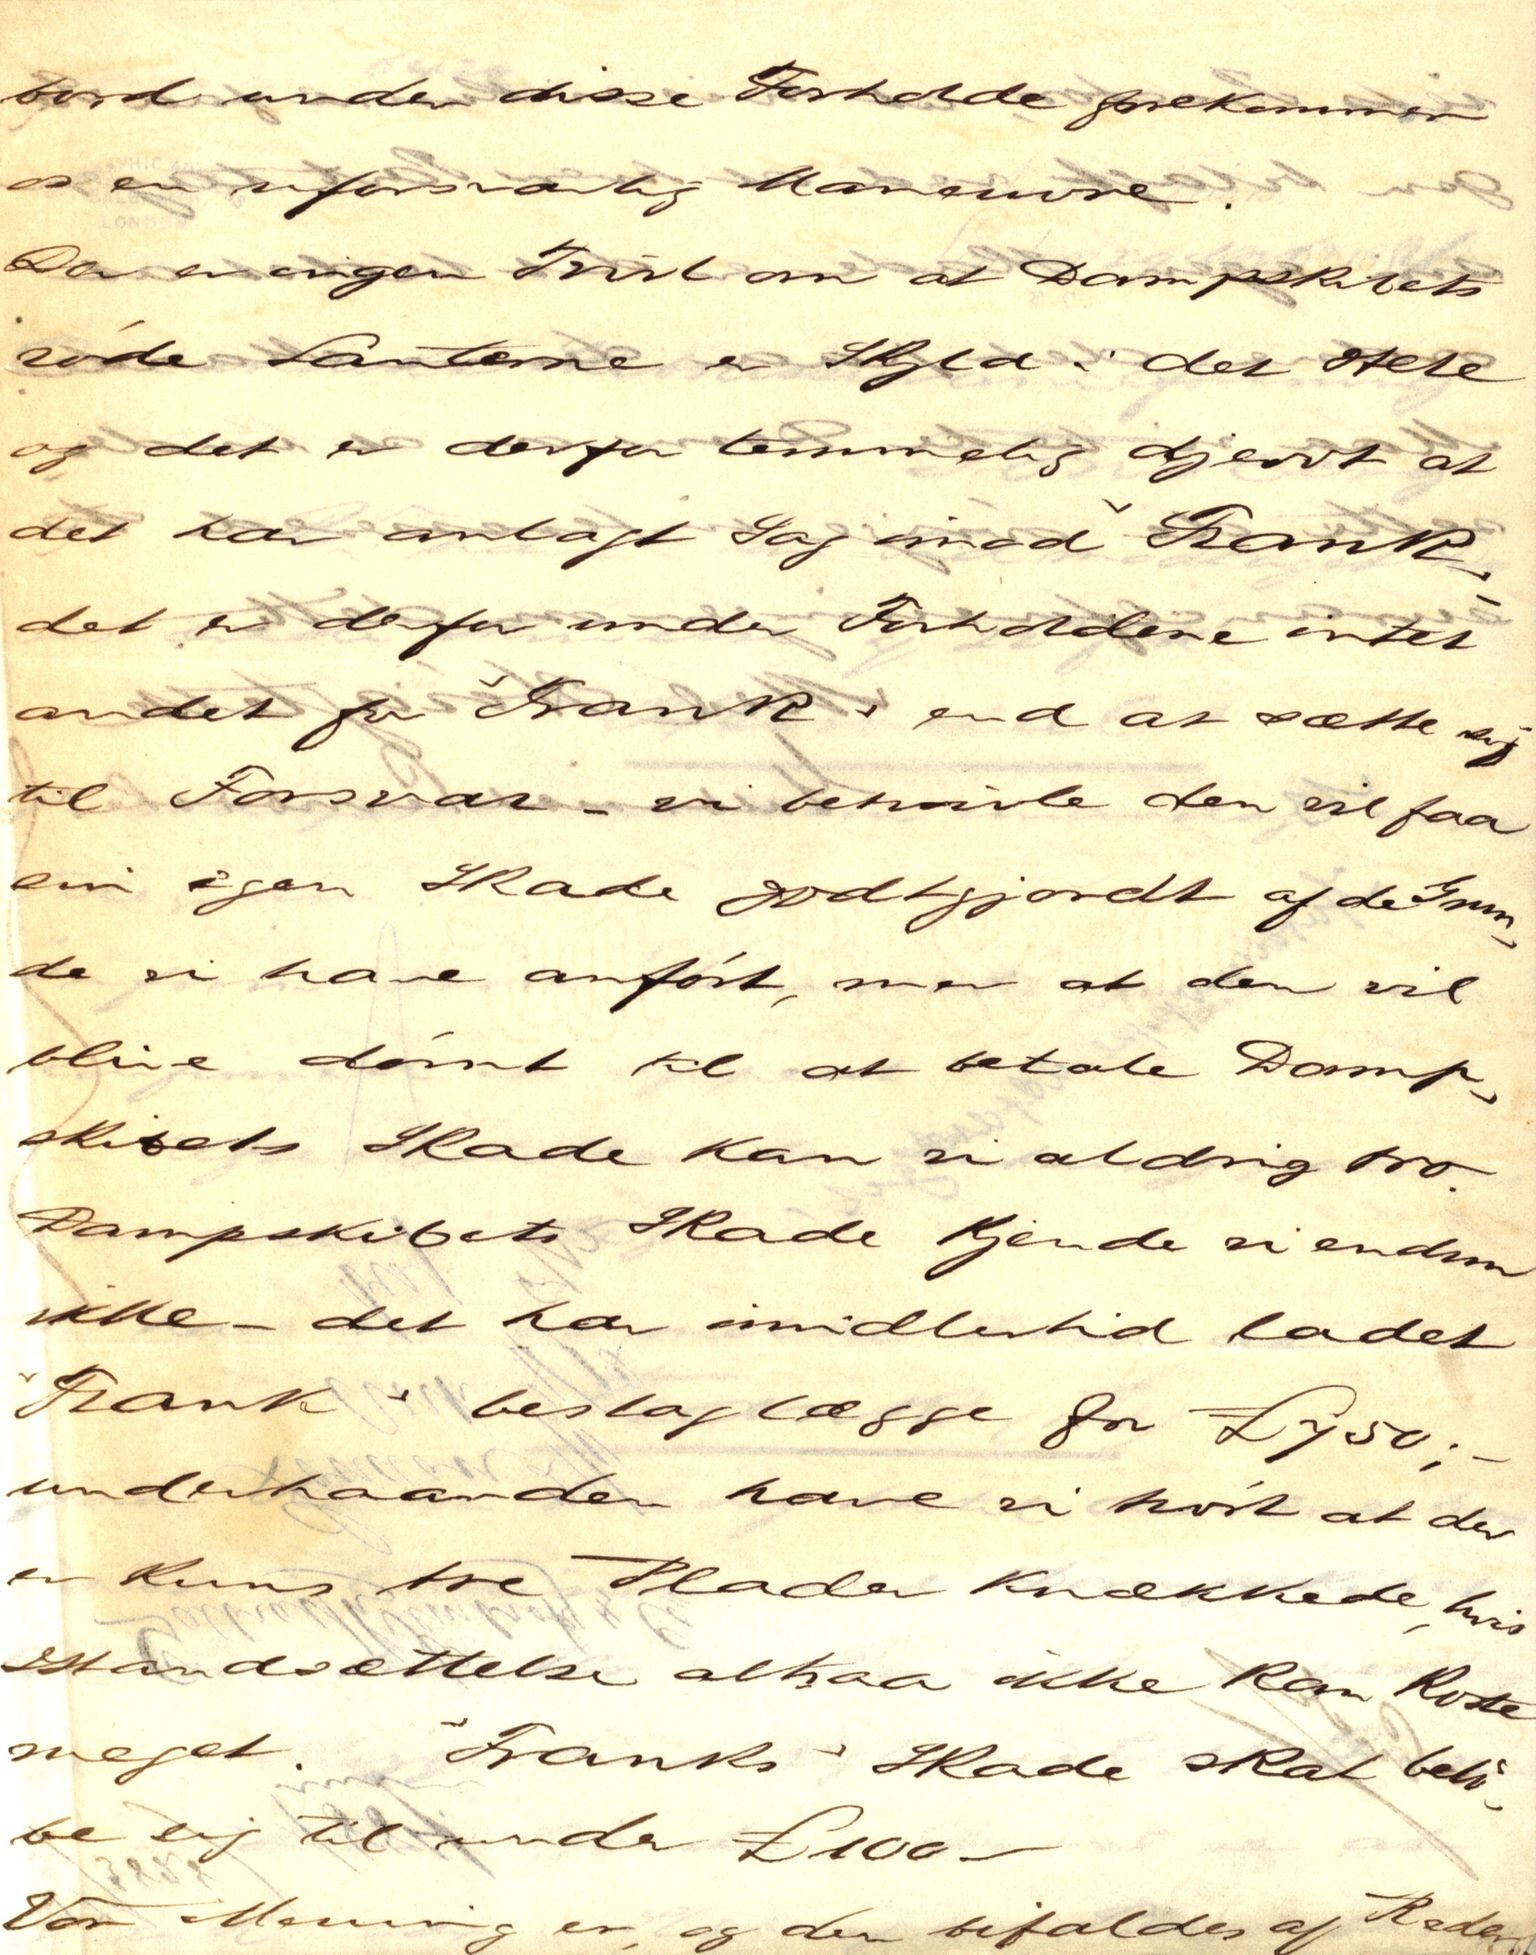 bord under disse Forholde forekommer
os en uforsvarlig Maneuvre.
Der er ingen Tvivl om at Dampskibets
røde Lanterne er Skyld i det Hele
og det er derfor temmelig djervt at
det har anlagt Sag imod "Frank" -
det er derfor under Forholdene intet
andet for "Frank" end at sætte sig
til Forsvar - vi betvivle den vil faa
sin egen Skade godtgjordt af de Grun-
de vi have anført, men at den vil
blive dømt til at betale Damp-
skibets Skade kan vi aldrig tro.
Dampskibets Skade kjende vi endnu
ikke - det har imidlertid ladet
"Frank" beslaglægge for £750;-
underhaanden have vi hørt at der
er kuns tre Plader knækkede, hvis
Istandsættelse altsaa ikke kan koste
meget. "Franks" Skade skal belö-
be sig til under £100 -
Vor Mening er, og den bifaldes af